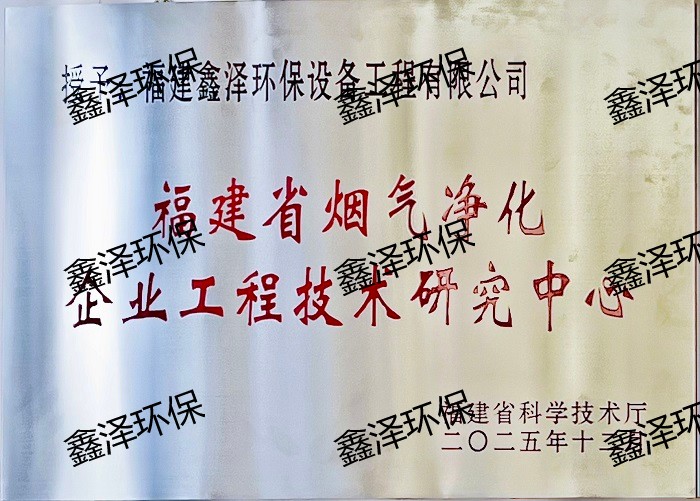 授予 福建鑫泽环保设备工程有限公司
福建省烟气净化
企业工程技术研究中心
福建省科学技术厅
二〇二五年十二月
鑫泽环保
鑫泽环保
鑫泽环保
鑫泽环保
鑫泽环保
鑫泽环保
鑫泽环保
鑫泽环保
鑫泽环保